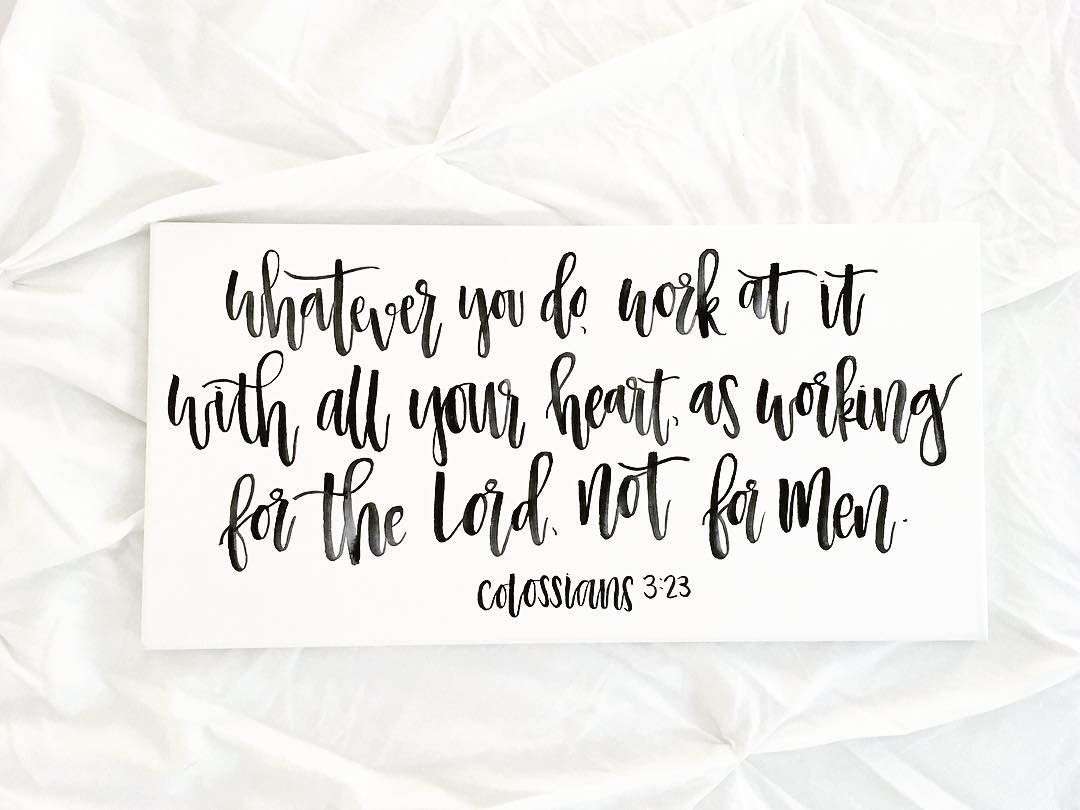 whatever you do, work at it
with all your heart, as working
for the Lord, not for men.
colossians 3:23